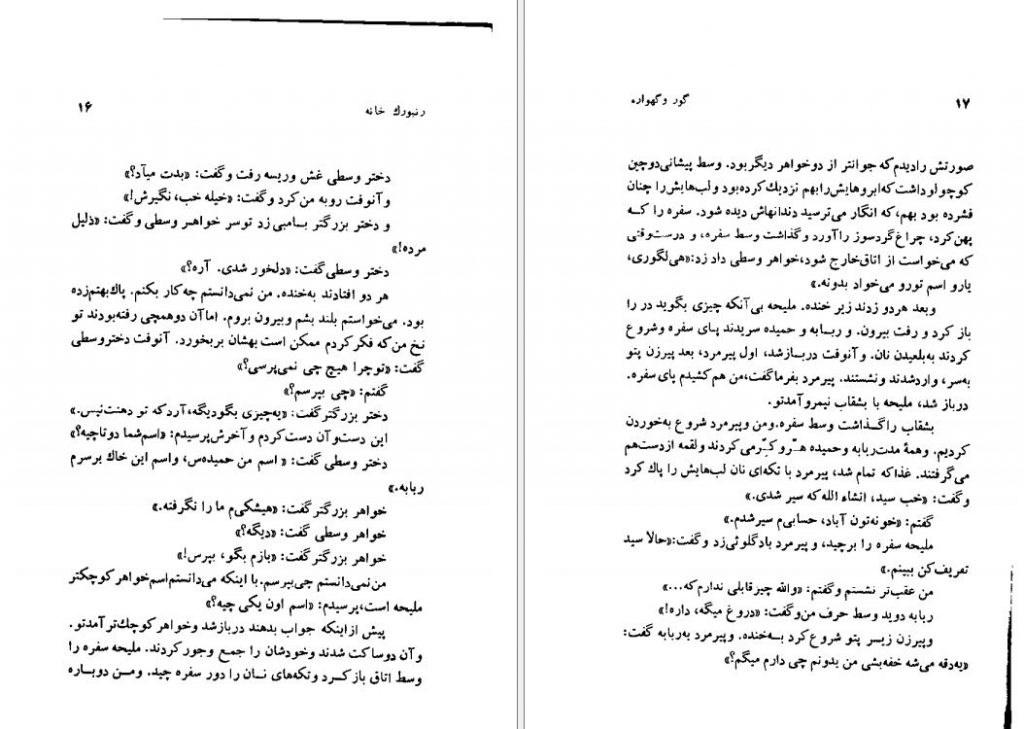 ۱۶
زنبورك خانه
دختر وسطی غش وریسه رفت وگفت: «بدت میآد؟»
وآنوقت روبه من‌کرد وگفت: «خیله خب، نگیرش!»
و دختر بزرگتر بـامبی زد توسر خواهـر وسطی وگفت: «ذلیل
مرده!»
دختر وسطی‌گفت: «دلخور شدی. آره؟»
هر دو افتادند به‌خنده. من نمی‌دانستم چه‌کار بکنم. پاك‌بهتم‌زده
بود. می‌خواستم بلند بشم وبیرون بروم. اماآن دوهمچی رفته‌بودند تو
نخ من‌که فکرکردم ممکن است بهشان بربخورد. آنوقت دختروسطی
گفت: «توچرا هیچ چی نمی‌پرسی؟»
گفتم: «چی بپرسم؟»
دختر بزرگترگفت: «یه‌چیزی بگودیگه، آردکه تو دهنت‌نیس.»
این دست‌وآن دست‌کردم وآخرش‌پرسیدم: «اسم‌شما دوتاچیه؟»
دختر وسطی گفت: « اسم من حمیده‌س، واسم این خاك برسرم
ربابه.»
خواهر بزرگترگفت: «هیشکی‌م ما را نگرفته.»
خواهر وسطی گفت: «دیگه؟»
خواهر بزرگترگفت: «بازم بگو، بپرس!»
من‌نمی‌دانستم چی‌بپرسم. با اینکه می‌دانستم‌اسم‌خواهرکوچکتر
ملیحه است،پرسیدم: «اسم اون یکی چیه؟»
پیش ازاینکه جواب بدهند دربازشد وخواهرکوچك‌ترآمدتو.
وآن دوساکت شدند وخودشان را جمع وجورکردند. ملیحه سفره را
وسط اتاق بازکـرد وتکه‌های نـان را دور سفره چید. ومـن دوبـاره
گور وگهواره
۱۷
صورتش رادیدم‌که جوانتر از دوخواهر دیگربود. وسط پیشانی‌دوچین
کوچولوداشت‌که‌ابروهایش‌رابهم نزدیك‌کرده‌بود ولب‌هایش‌را چنان
فشرده بود بهم،که انگار می‌ترسید دندانهاش دیده شود. سفره را کـه
پهن‌کرد، چراغ‌گردسوز راآورد وگذاشت وسط سفره، و درست‌وقتی
که می‌خواست از اتاق‌خارج شود،خواهر وسطی داد زد:«هی‌لگوری،
یارو اسم تورو می‌خواد بدونه.»
وبعد هردو زدند زیر خنده. ملیحه بی‌آنکه چیزی بگوید در را
باز کرد و رفت بیرون. و ربـابه و حمیده سریدند پـای سفره وشروع
کردند به‌بلعیدن نان. وآنوقت دربـازشد، اول پیرمرد، بعد پیرزن پتو
به‌سر، واردشدند ونشستند. پیرمرد بفرماگفت،من هم‌کشیدم پای سفره.
درباز شد، ملیحه با بشقاب نیمروآمدتو.
بشقاب راگـذاشت وسط سفره.ومن وپیرمرد شروع به‌خوردن
کردیم. وهمهٔ مدت‌ربابه وحمیده هـِرّو کِـرّمی‌کردند ولقمه ازدست‌هم
می‌گرفتند. غذاکه تمام شد، پیرمرد با تکه‌ای نان لب‌هایش را پاك کرد
وگفت: «خب سید، انشاء الله که سیر شدی.»
گفتم: «خونه‌تون آباد، حسابی‌م سیرشدم.»
ملیحه سفره را برچید، و پیرمرد بادگلوئی‌زد وگفت:«حالاً سید
تعریف‌کن ببینم.»
من عقب‌تر نشستم وگفتم: «والله چیزقابلی ندارم‌که...»
ربابه دوید وسط حرف من‌وگفت: «دروغ میگه، داره!»
وپیرزن زیـر پتو شروع‌کرد بـه‌خنده. وپیرمرد به‌ربابه گفت:
«یه‌دقه می‌شه خفه‌بشی من بدونم چی دارم میگم؟»